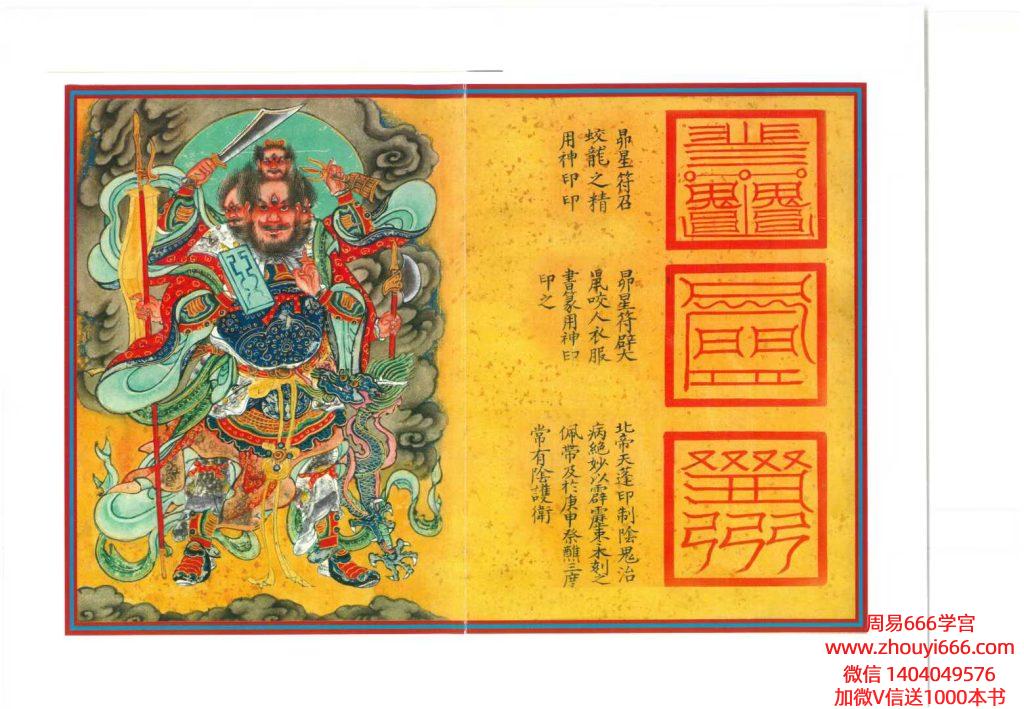 昴星符召
蛟龍之精
用神印印
昴星符辟大
鼠咬人衣服
書篆用神印
印之
北帝天蓬印制陰鬼治
病絶妙以霹靂枣木刻之
佩帶及於庚申祭醮三度
常有陰護衛
周易666学宫
www.zhouyi666.com
微信 1404049576
加微V信送1000本书